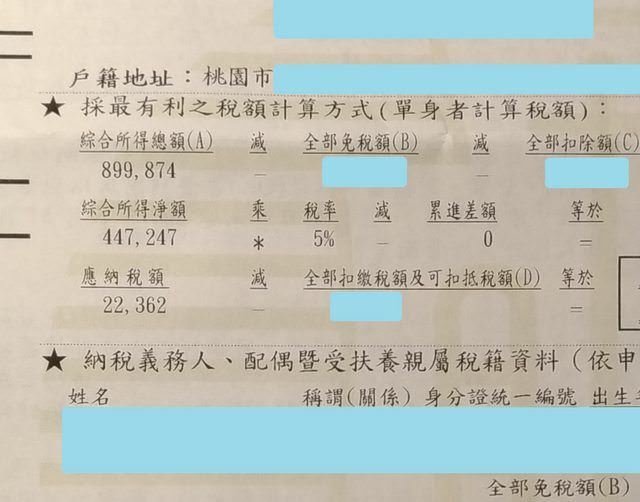 戶籍地址：桃園市
★ 採最有利之稅額計算方式(單身者計算稅額)：
綜合所得總額(A) 減 全部免稅額(B) 減 全部扣除額(C)
899,874 － －
綜合所得淨額 乘 稅率 減 累進差額 等於
447,247 * 5% － 0 ＝
應納稅額 減 全部扣繳稅額及可扣抵稅額(D) 等於
22,362 － ＝
★ 納稅義務人、配偶暨受扶養親屬稅籍資料（依申
姓名 稱謂(關係) 身分證統一編號 出生
全部免稅額(B)